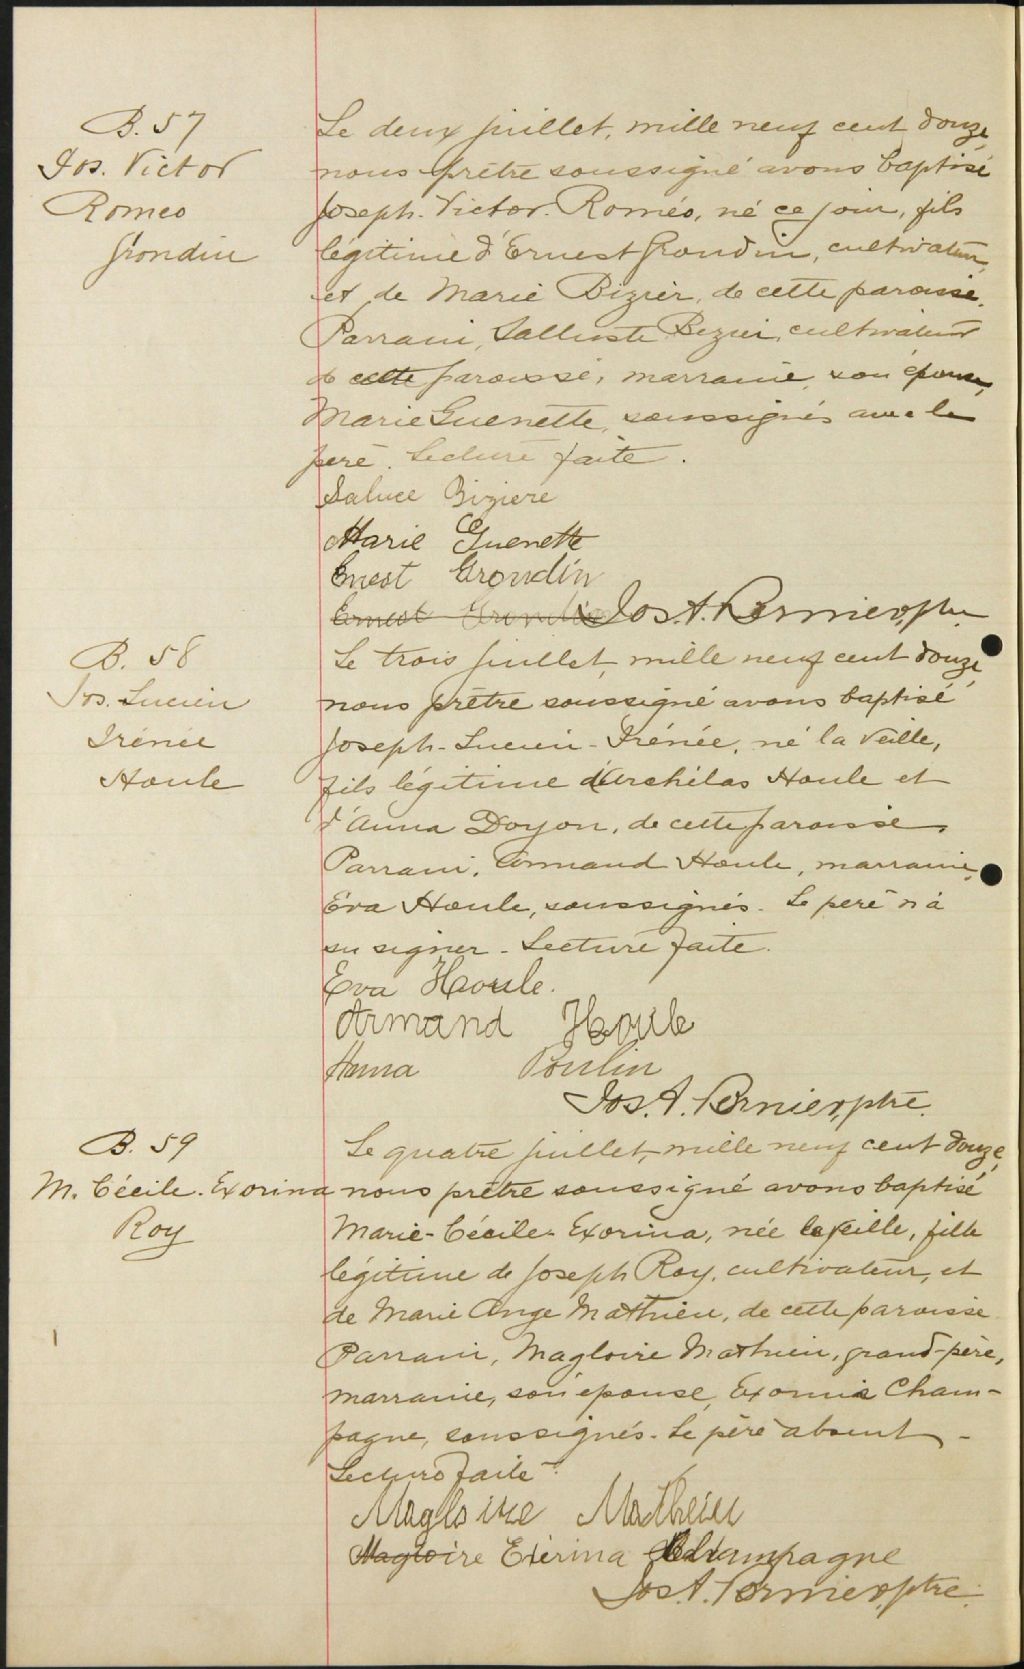 B. 57
Jos. Victor
Romeo
Grondin
Le deux juillet, mille neuf cent douze,
nous prêtre soussigné avons baptisé
Joseph-Victor-Roméo, né ce jour, fils
légitime d'Ernest Grondin, cultivateur,
et de Marie Bizier, de cette paroisse.
Parrain, Salluste Bizier, cultivateur
de cette paroisse, marraine, son épouse,
Marie Guenette, soussignés avec le
père. Lecture faite.
Saluce Biziere
Marie Guenette
Ernest Grondin
Ernest Grondin Jos. A. Bernier, ptre
B. 58
Jos. Lucien
Irénée
Houle
Le trois juillet, mille neuf cent douze,
nous prêtre soussigné avons baptisé
Joseph-Lucien-Irénée, né la veille,
fils légitime d'Archélas Houle et
d'Anna Doyon, de cette paroisse.
Parrain, Armand Houle, marraine,
Éva Houle, soussignés. Le père n'a
su signer. Lecture faite.
Eva Houle.
Armand Houle
Anna Poulin
Jos. A. Bernier, ptre.
B. 59
M. Cécile. Exorina
Roy
Le quatre juillet, mille neuf cent douze,
nous prêtre soussigné avons baptisé
Marie-Cécile-Exorina, née la veille, fille
légitime de Joseph Roy, cultivateur, et
de Marie Ange Mathieu, de cette paroisse
Parrain, Magloire Mathieu, grand-père,
marraine, son épouse, Exorina Cham-
pagne, soussignés. Le père absent.
Lecture faite.
Magloire Mathieu
Magloire Exerina Champagne
Jos. A. Bernier, ptre.